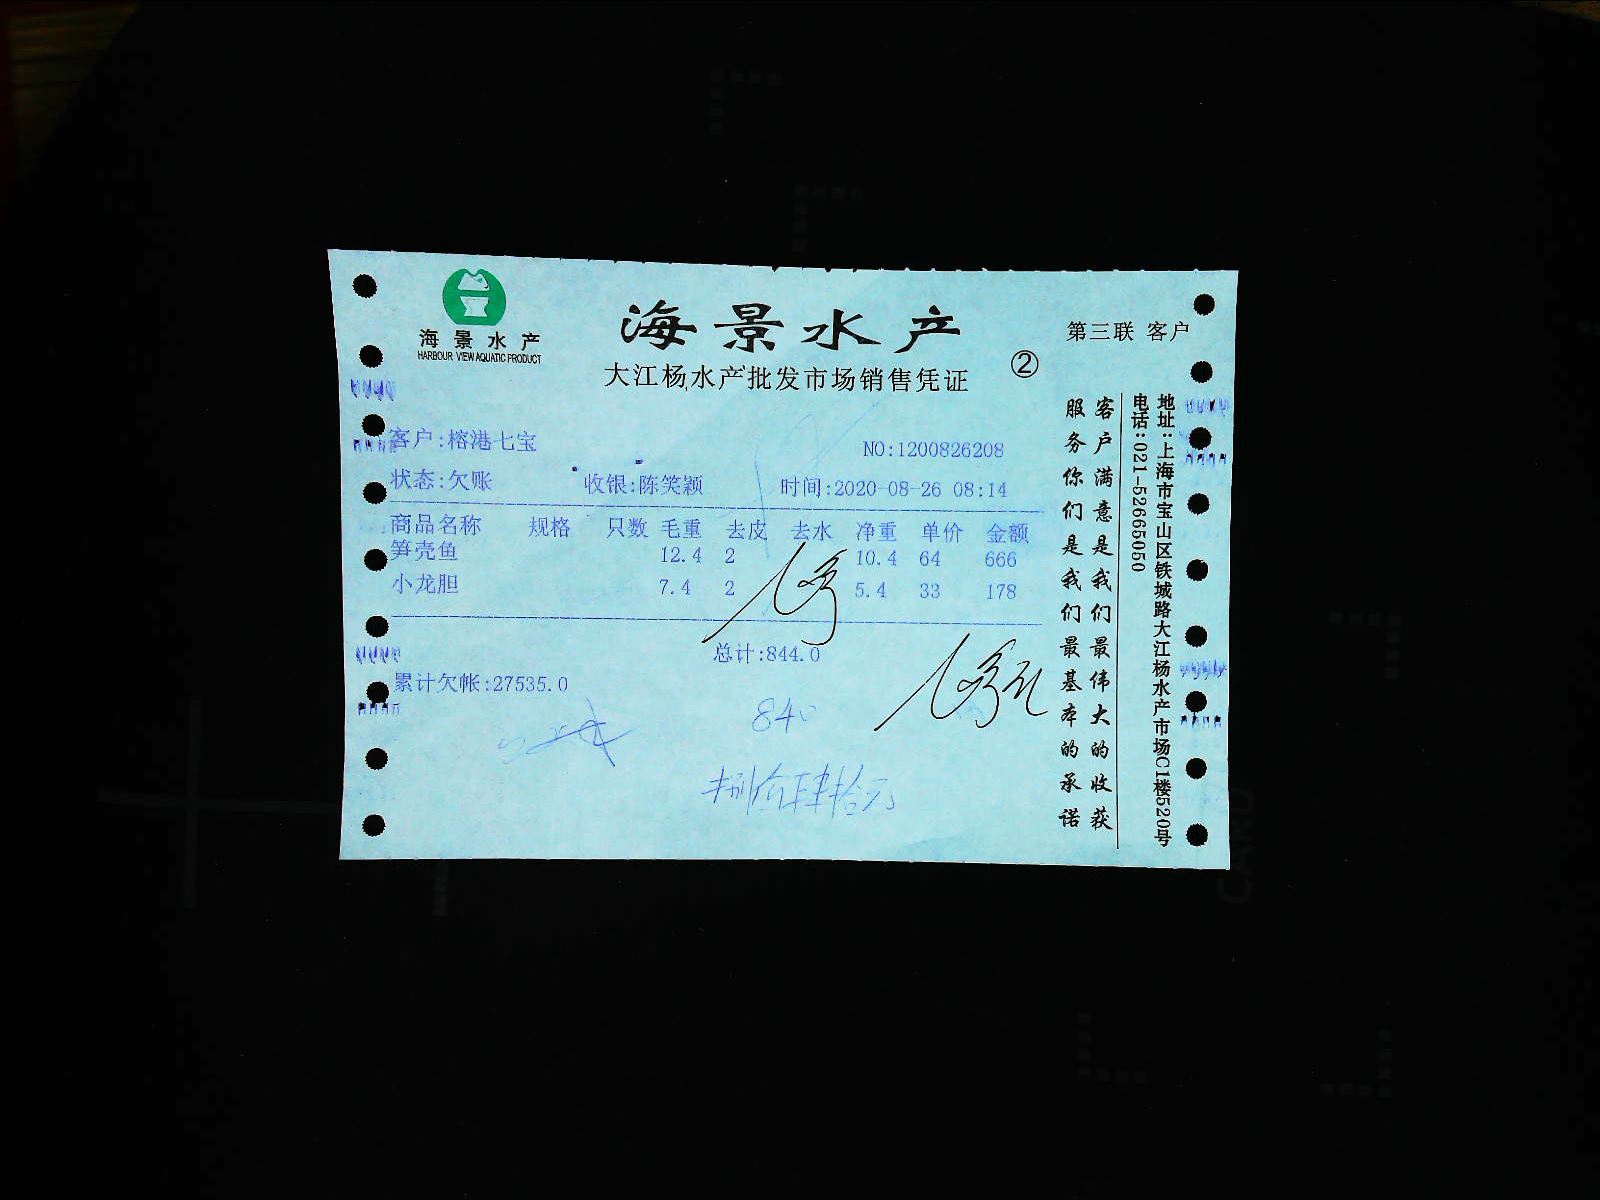 海景水产
HARBOUR VIEW AQUATIC PRODUCT
海景水产
大江杨水产批发市场销售凭证
②
第三联 客户
客户:榕港七宝
NO:1200826208
状态:欠账 收银:陈笑颖 时间:2020-08-26 08:14
商品名称 规格 只数 毛重 去皮 去水 净重 单价 金额
笋壳鱼 12.4 2 10.4 64 666
小龙胆 7.4 2 5.4 33 178
总计:844.0
累计欠帐:27535.0
840
捌佰肆拾元
客户满意是我们最伟大的收获
服务你们是我们最基本的承诺
地址:上海市宝山区铁城路大江杨水产市场C1楼520号
电话:021-52665050